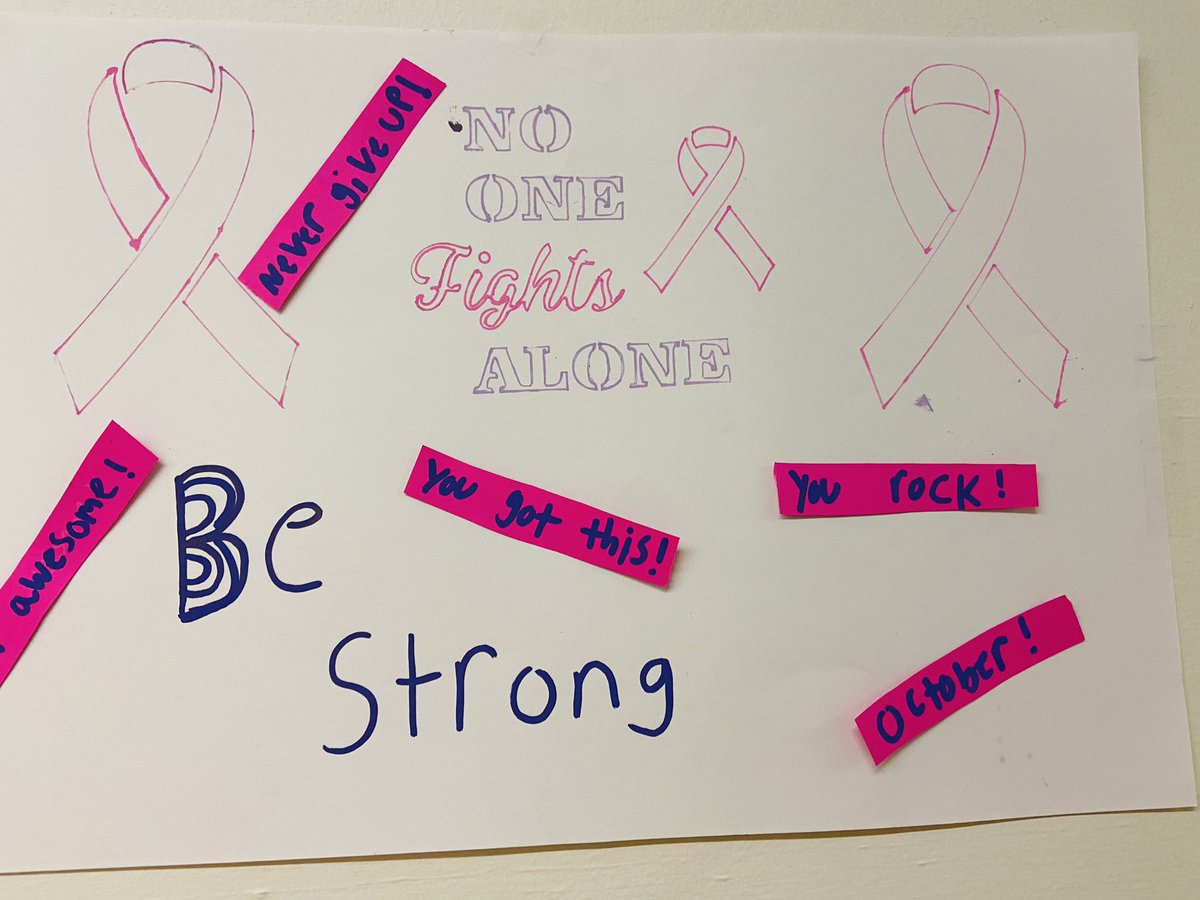 Never give UP!
NO
ONE
Fights
ALONE
awesome!
Be
Strong
You got this!
You rock!
October!